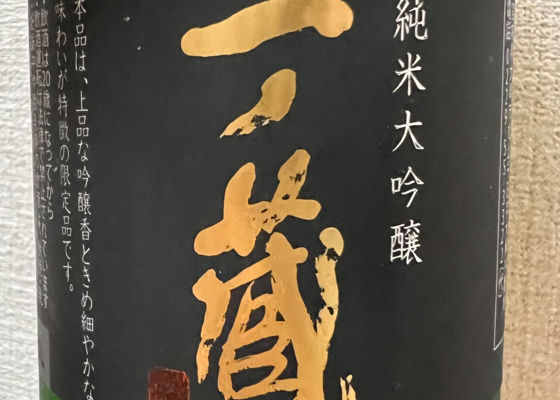 純米大吟醸
一ノ蔵
本品は、上品な吟醸香ときめ細やかな
味わいが特徴の限定品です。
飲酒は20歳になってから